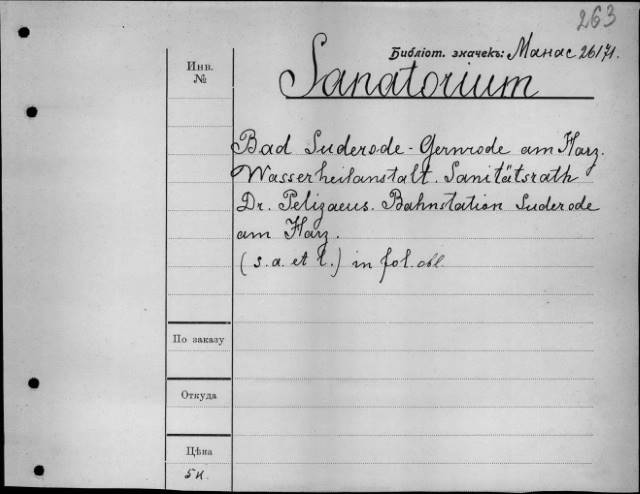 263
Библіот. значекъ: Манас 26/71.
Инв.
№
Sanatorium
Bad Suderode-Gernrode am Harz.
Wasserheilanstalt. Sanitätsrath
Dr. Pelizaeus. Bahnstation Suderode
am Harz.
(s. a. et l.) in fol. obl.
По заказу
Откуда
Цѣна
5 к.